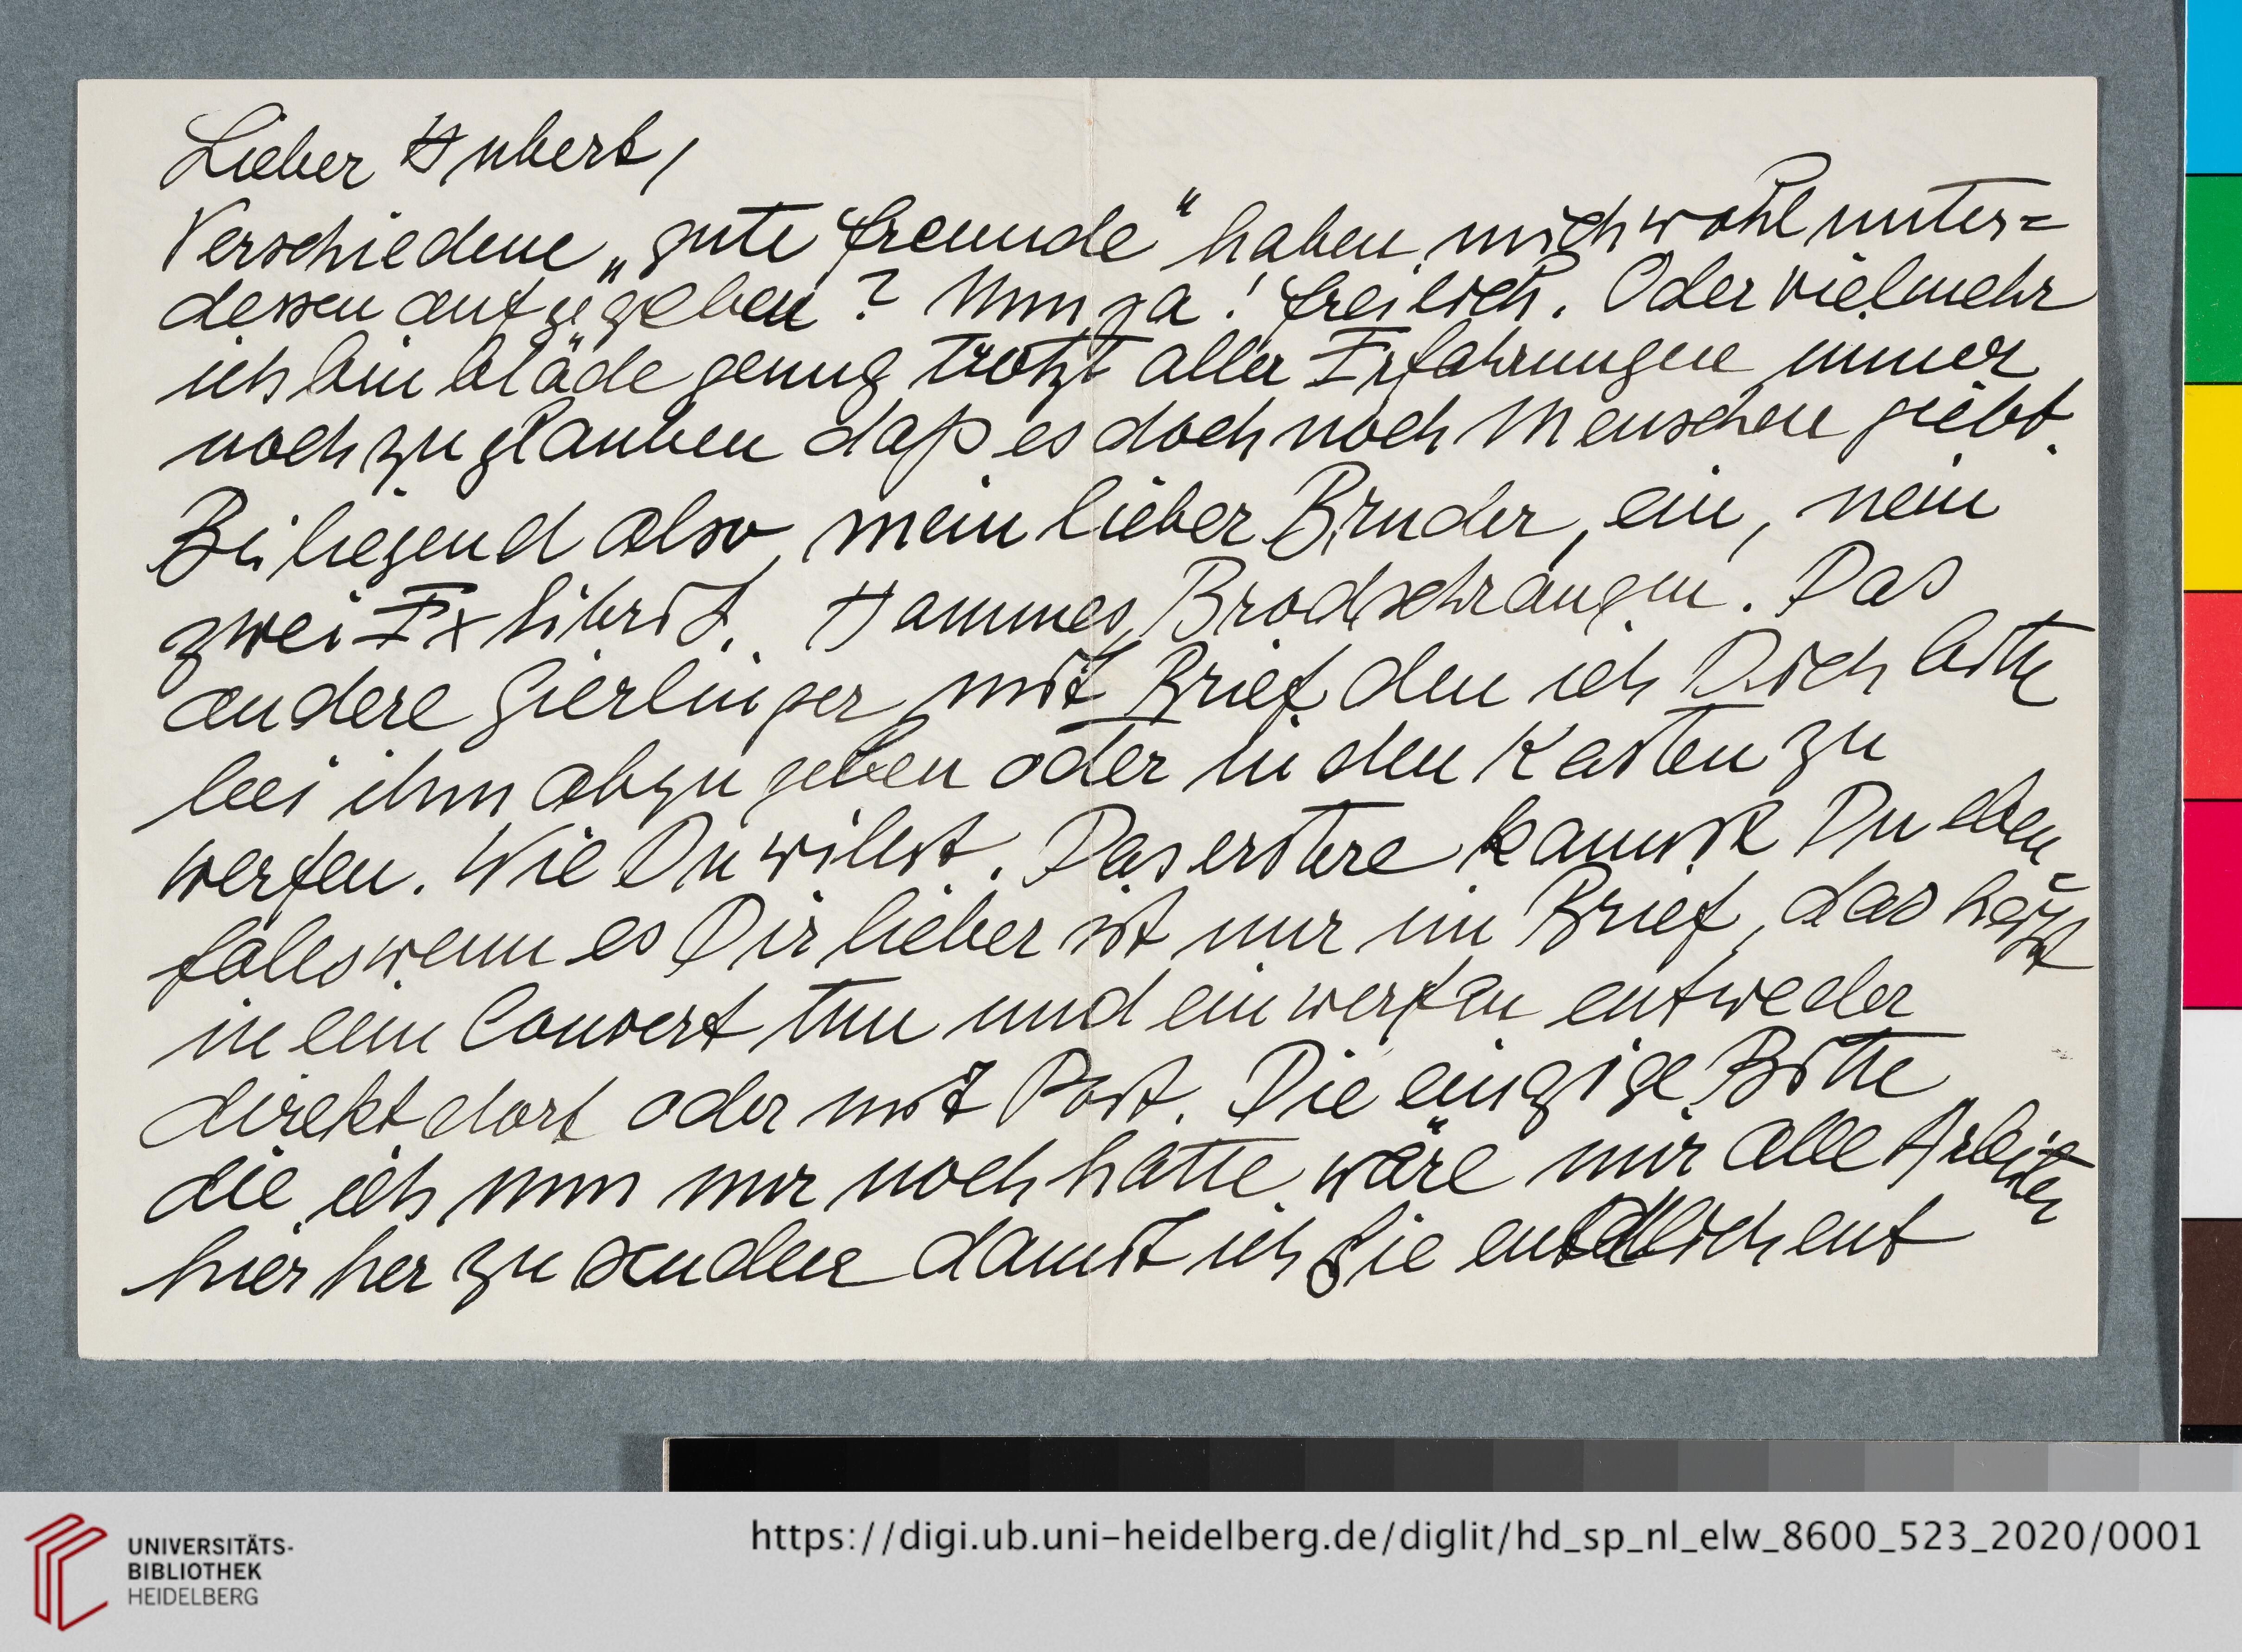 Lieber Hubert,
Verschiedene „gute Freunde" haben mich wohl unter=
dessen aufgegeben? Nun ja! freilich. Oder vielmehr
ich bin bläde genug trotzt aller Erfahrungen immer
noch zu glauben daß es doch noch Menschen giebt.
Beiliegend also, mein lieber Bruder, ein, nein
zwei Exlibris. Hammes, Brodschrangen. Das
andere Gierlinger mit Brief den ich Dich bitte
bei ihm abzugeben oder in den Kasten zu
werfen. Wie Du willst. Das erstere kannst Du eben
falls wenn es Dir lieber ist nur im Brief, das heißt
in ein Couvert tun und einwerfen entweder
direkt dort oder mit Post. Die einzige Bitte
die ich nun nur noch hätte wäre mir alle Arbeiten
hierher zu senden damit ich Sie endlich ent
UNIVERSITÄTS-
BIBLIOTHEK
HEIDELBERG
https://digi.ub.uni-heidelberg.de/diglit/hd_sp_nl_elw_8600_523_2020/0001